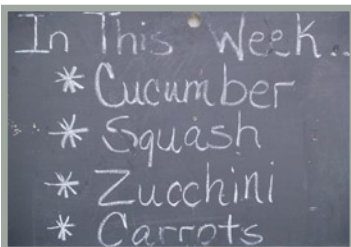 In This Week..
* Cucumber
* Squash
* Zucchini
* Carrots